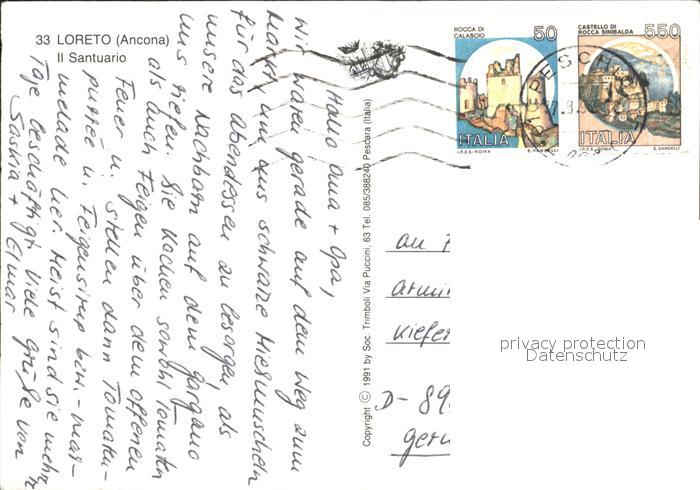 33 LORETO (Ancona)
Il Santuario
Hallo Oma + Opa,
wir waren gerade auf dem Weg zum
Markt, um uns schwarze Miesmuscheln
für das Abendessen zu besorgen, als
unsere Nachbarn auf dem Gargano
uns riefen. Sie kochen sowohl Tomaten
als auch Feigen über dem offenen
Feuer u. stellen dann Tomaten-
purree u. Feigensirup bzw. -mar-
melade her. Meist sind sie mehr
Tage beschäftigt. Viele Grüße von
Saskia + Elmar
Copyright © 1991 by Soc. Trimboli Via Puccini, 63 Tel. 085/388240 Pescara (Italia)
ROCCA DI
CALASCIO
50
ITALIA
I.P.Z.S.-ROMA E. VANGELLI
CASTELLO DI
ROCCA SINIBALDA
550
ITALIA
I.P.Z.S.-ROMA E. VANGELLI
PESCH
An
Armi
Kiefer
D-89
Germ
privacy protection
Datenschutz